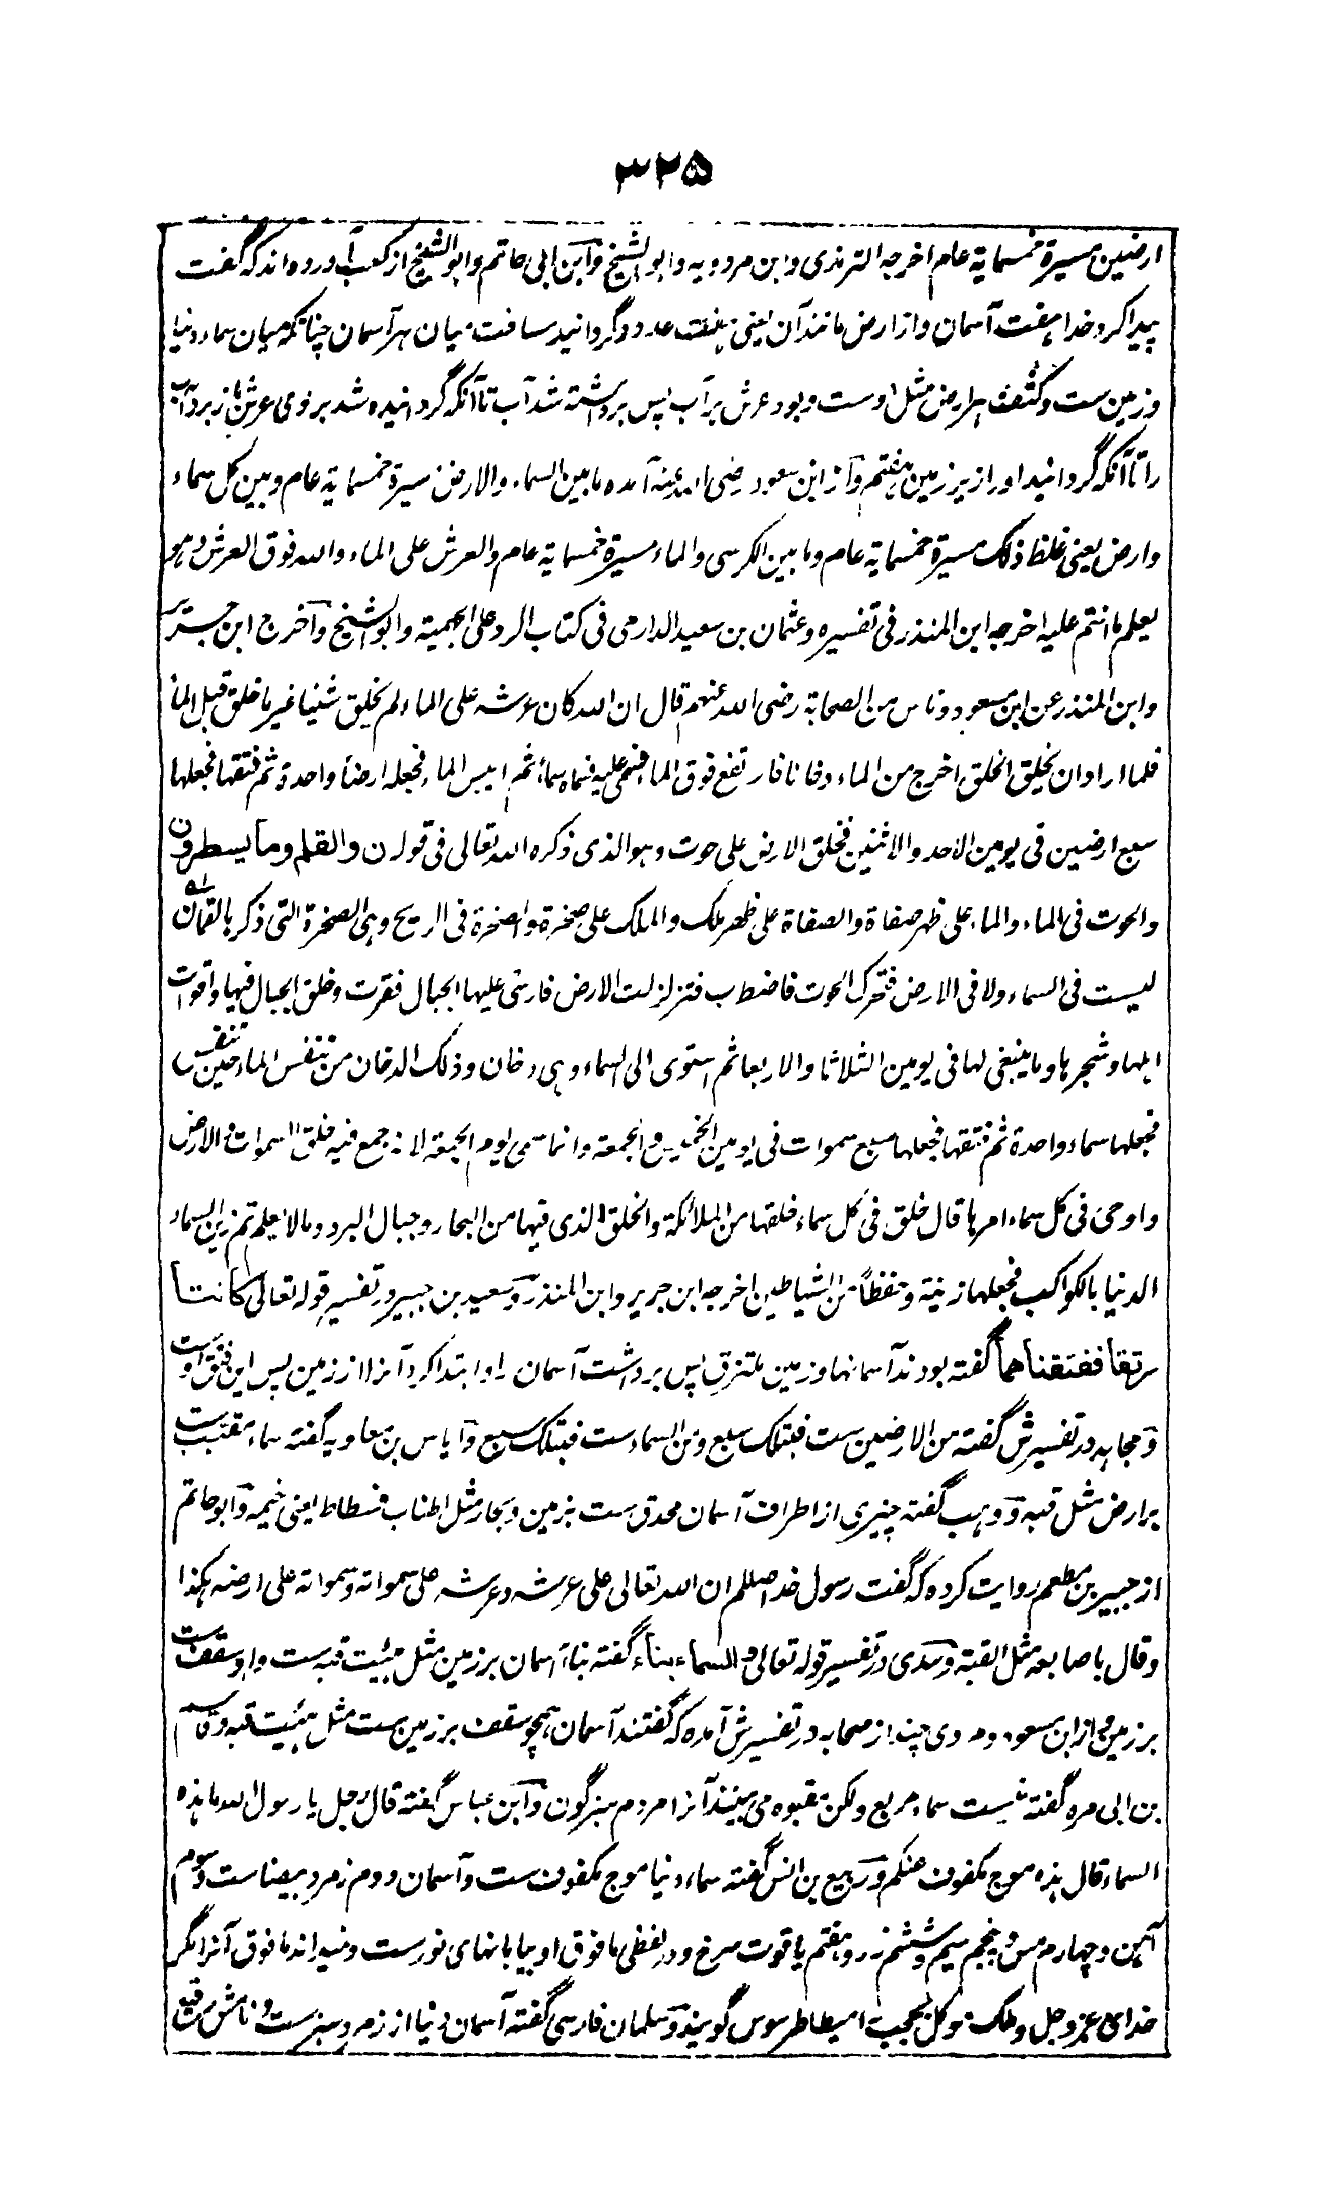 ۳۲۵
ارضین مسیرة خمسمایة عام اخرجه الترمذی وابن مردویه وابو الشیخ وابن ابی حاتم وابو الشیخ از کعب آورده اند که گفت
پیدا کرد خدا هفت آسمان و از ارض مانند آن یعنی هفت عدد و گردانید مسافت میان هر آسمان چنانکه میان سماء دنیا
و زمین ست و کثف هر ارض مثل اوست و بود عرش بر آب پس برداشته شد آب تا آنکه گردانیده شد بر وی عرش باز برد آب
را تا آنکه گردانید او را زیر زمین هفتم و از ابن مسعود رضی الله عنه آمده ما بین السماء والارض مسیرة خمسمایة عام وبین کل سماء
وارض یعنی غلظ ذلک مسیرة خمسمایة عام وما بین الکرسی والماء مسیرة خمسمایة عام والعرش علی الماء والله فوق العرش وهو
یعلم ما انتم علیه اخرجه ابن المنذر فی تفسیره وعثمان بن سعید الدارمی فی کتاب الرد علی الجهمیة وابو الشیخ واخرج ابن جریر
وابن المنذر عن ابن مسعود وناس من الصحابة رضی الله عنهم قال ان الله کان عرشه علی الماء لم یخلق شیئا غیر ما خلق قبل الماء
فلما اراد ان یخلق الخلق اخرج من الماء دخانا فارتفع فوق الماء فسمی علیه فسماه سماء ثم ایبس الماء فجعله ارضا واحدة ثم فتقها فجعلها
سبع ارضین فی یومین الاحد والاثنین فخلق الارض علی حوت وهو الذی ذکره الله تعالی فی قوله ن والقلم وما یسطرون
والحوت فی الماء والماء علی ظهر صفاة والصفاة علی ظهر ملک والملک علی صخرة والصخرة فی الریح وهی الصخرة التی ذکر بالقمان انه
لیست فی السماء ولا فی الارض فتحرک الحوت فاضطرب فتزلزلت الارض فارسی علیها الجبال فقرت وخلق الجبال فیها واقوات
اهلها وشجرها وما ینبغی لها فی یومین الثلاثا والاربعا ثم استوی الی السماء وهی دخان وذلک الدخان من تنفس الماء حین تنفس
فجعلها سماء واحدة ثم فتقها فجعلها سبع سموات فی یومین الخمیس والجمعة وانما سمی یوم الجمعة لانه جمع فیه خلق السموات والارض
واوحی فی کل سماء امرها قال خلق فی کل سماء خلقها من الملائکة والخلق الذی فیها من البحار وجبال البرد وما لا یعلم ثم زین السماء
الدنیا بالکواکب فجعلها زینة وحفظا من الشیاطین اخرجه ابن جریر وابن المنذر وسعید بن جبیر در تفسیر قوله تعالی کانتا
رتقا ففتقناهما گفته بودند آسمانها و زمین ملتزق پس برداشت آسمان را و ابتدا کرد آنرا از زمین پس این فتق اوست
و مجاهد در تفسیرش گفته من الارضین ست فتلک سبع ومن السماء ست فتلک سبع و ایاس بن معاویه گفته سماء مقبب ست
بر ارض مثل قبه و وهب گفته چیزی از اطراف آسمان محدق ست بزمین و بحار مثل اطناب فسطاط یعنی خیمه و ابو حاتم
از جبیر بن مطعم روایت کرده که گفت رسول خدا صللم ان الله تعالی علی عرشه وعرشه علی سمواته وسمواته علی ارضه هکذا
وقال باصابعه مثل القبة و سدی در تفسیر قوله تعالی والسماء بناء گفته بناء آسمان بر زمین مثل هیئت قبه ست و او سقف ست
بر زمین و از ابن مسعود و مردی چند از صحابه در تفسیرش آمده که گفتند آسمان همچو سقف بر زمین ست مثل هیئت قبه و قاسم
بن ابی مره گفته نیست سماء مربع ولکن مقبوه می بینند آنرا مردم سبزگون و ابن عباس گفته قال رجل یا رسول الله ما هذه
السماء قال هذه موج مکفوف عنکم و ربیع بن انس گفته سماء دنیا موج مکفوف ست و آسمان دوم زمرد بیضاست و سوم
آهن و چهارم مس و پنجم سیم و ششم زر و هفتم یاقوت سرخ و در لفظی ما فوق او بیابانهای نورست و نمیداند ما فوق آنرا مگر
خدای عز و جل و ملک موکل بحجب امیطاطروس گویند و سلمان فارسی گفته آسمان دنیا از زمرد سبزست و نامش رقیع